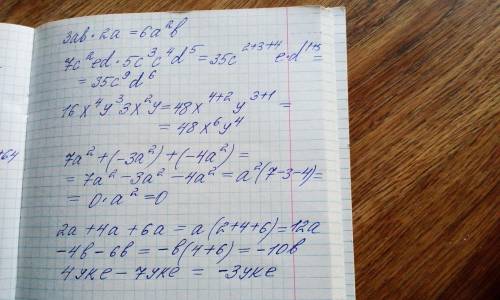 3ab · 2a = 6a²b
7c²ed · 5c³c⁴d⁵ = 35c²⁺³⁺⁴ e·d¹⁺⁵ =
= 35c⁹d⁶
16x⁴y³3x²y = 48x⁴⁺²y³⁺¹ =
= 48x⁶y⁴
7a² + (-3a²) + (-4a²) =
= 7a² - 3a² - 4a² = a²(7-3-4) =
= 0 · a² = 0
2a + 4a + 6a = a(2+4+6) = 12a
-4в - 6в = -в(4+6) = -10в
4уке - 7уке = -3уке